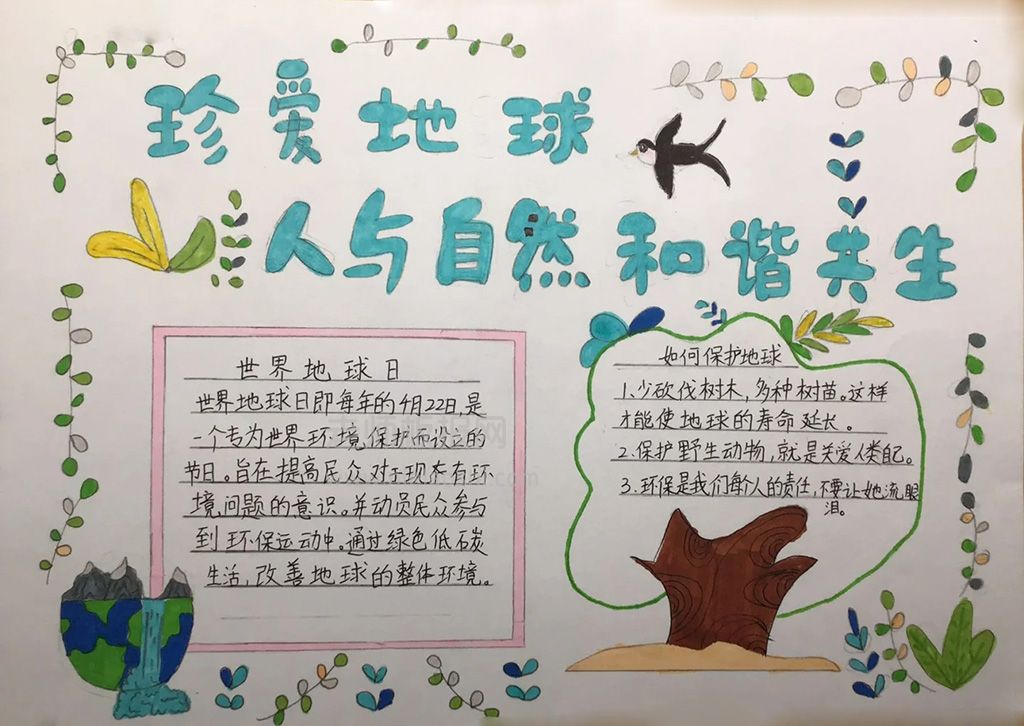 珍爱地球
人与自然和谐共生
世界地球日
世界地球日即每年的4月22日,是
一个专为世界环境保护而设立的
节日。旨在提高民众对于现有环
境问题的意识。并动员民众参与
到环保运动中。通过绿色低碳
生活,改善地球的整体环境。
如何保护地球
1.少砍伐树木,多种树苗。这样
才能使地球的寿命延长。
2.保护野生动物,就是关爱人类自己。
3.环保是我们每个人的责任,不要让她流眼
泪。